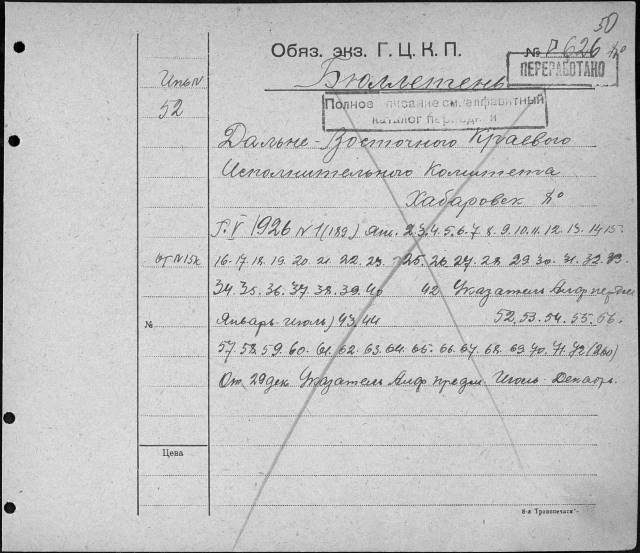 50
Обяз. экз. Г. Ц. К. П. № Р 626
ПЕРЕРАБОТАНО
Бюллетень
Полное описание см. алфавитный
каталог периодики
52
Дальне-Восточного Краевого
Исполнительного Комитета
Хабаровск
Г. V 1926 № 1(189) Янв. 2.3.4.5.6.7.8.9.10.11.12.13.14.15.
16.17.18.19.20.21.22.23. 25.26.27.28.29.30.31.32.33.
34.35.36.37.38.39.40 42 Указатель Алф.
Январь-июль) 43.44 52.53.54.55.56.
№
57.58.59.60.61.62.63.64.65.66.67.68.69.70.71.72(260)
От 29 дек. Указатель Алф. предм. Июль-Декабрь.
Цена